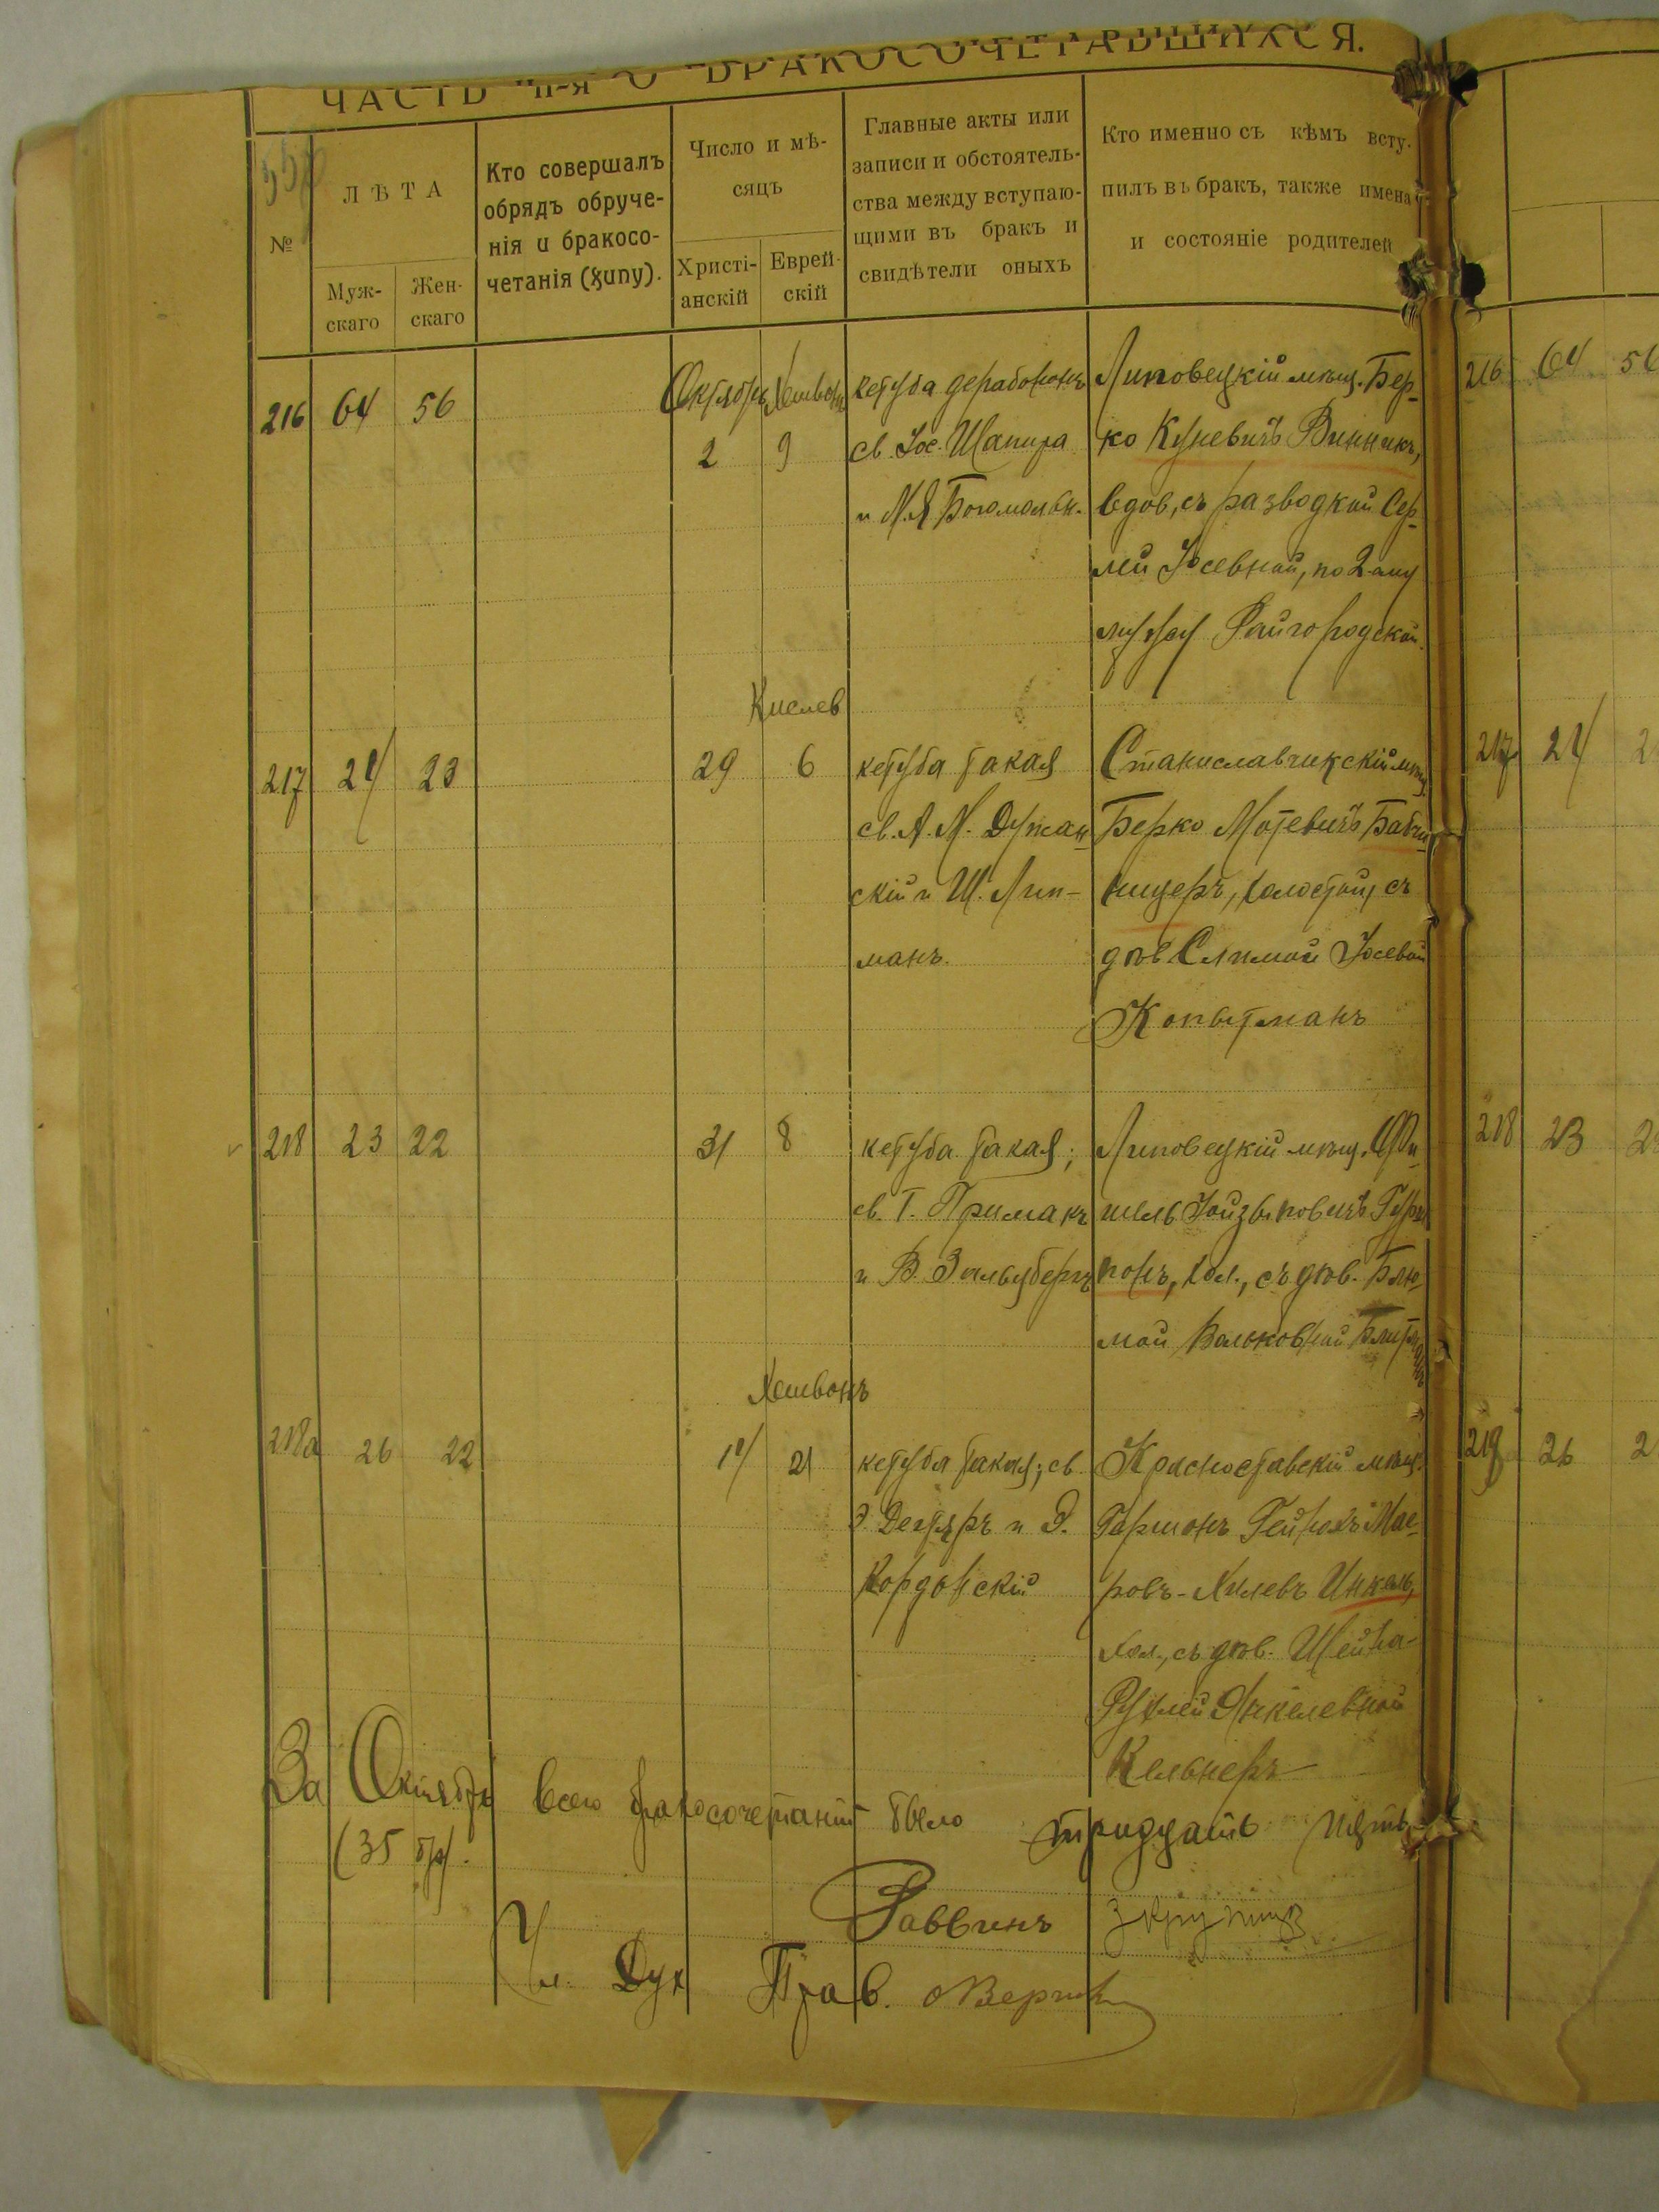 ЧАСТЬ II-я О БРАКОСОЧЕТАВШИХСЯ.
№
ЛѢТА
Муж-
скаго
Жен-
скаго
Кто совершалъ
обрядъ обруче-
нія и бракосо-
четанія (хупу).
Число и мѣ-
сяцъ
Христі-
анскій
Еврей-
скій
Главные акты или
записи и обстоятель-
ства между вступаю-
щими въ бракъ и
свидѣтели оныхъ
Кто именно съ кѣмъ всту-
пилъ въ бракъ, также имена
и состояніе родителей
216 64 56
Октябрь Хешвонъ
2 9
кетуба дерабононъ
св. Іос. Шапира
и М. Я Богомольн.
Липовецкій мѣщ. Бер-
ко Куневичъ Винникъ,
вдов, съ разводкой Сер-
лей Іосевной, по 2-ому
мужу Райгородской.
Кислев
217 24 23
29 6
кетуба такая
св. А. М. Дужан
скій и Ш. Лип-
манъ.
Станиславчикскій мѣщ.
Берко Мотевичъ Баби-
ницеръ, холостой, съ
дѣв. Слимой Іосевой
Копытманъ
218 23 22
31 8
кетуба такая;
св. Г. Примакъ
и В. Зальцбергъ
Липовецкій мѣщ. Фи-
шель
понъ, хол., съ дѣв. Блю-
мой Вольковной
Хешвонъ
218а 26 22
14 21
кетуба такая; св
Э. Дегтяръ и Э.
Кордонскій
Красноставскій мѣщ.
Гершонъ Гейнохъ Мае-
ровъ-Хилевъ Инкель,
хол., съ дѣв. Шейна-
Рухлей Янкелевной
Кельнеръ
За Октябрь всего бракосочетаній было тридцать пять
(35 бр).
Раввинъ
Чл. Дух Прав.
216 64 56
217 24 2
218 23 2
218 26 2